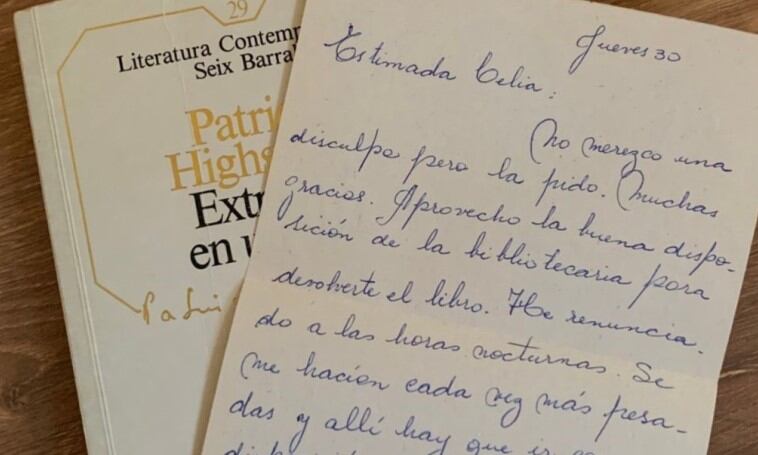 29
Literatura Contemp
Seix Barral
Patri
Highs
Extr
en u
Jueves 30
Estimada Celia:
No merezco una
disculpa pero la pido. Muchas
gracias. Aprovecho la buena dispo-
sición de la bibliotecaria para
devolverte el libro. He renuncia-
do a las horas nocturnas. Se
me hacían cada vez más pesa-
das y allí hay que ir